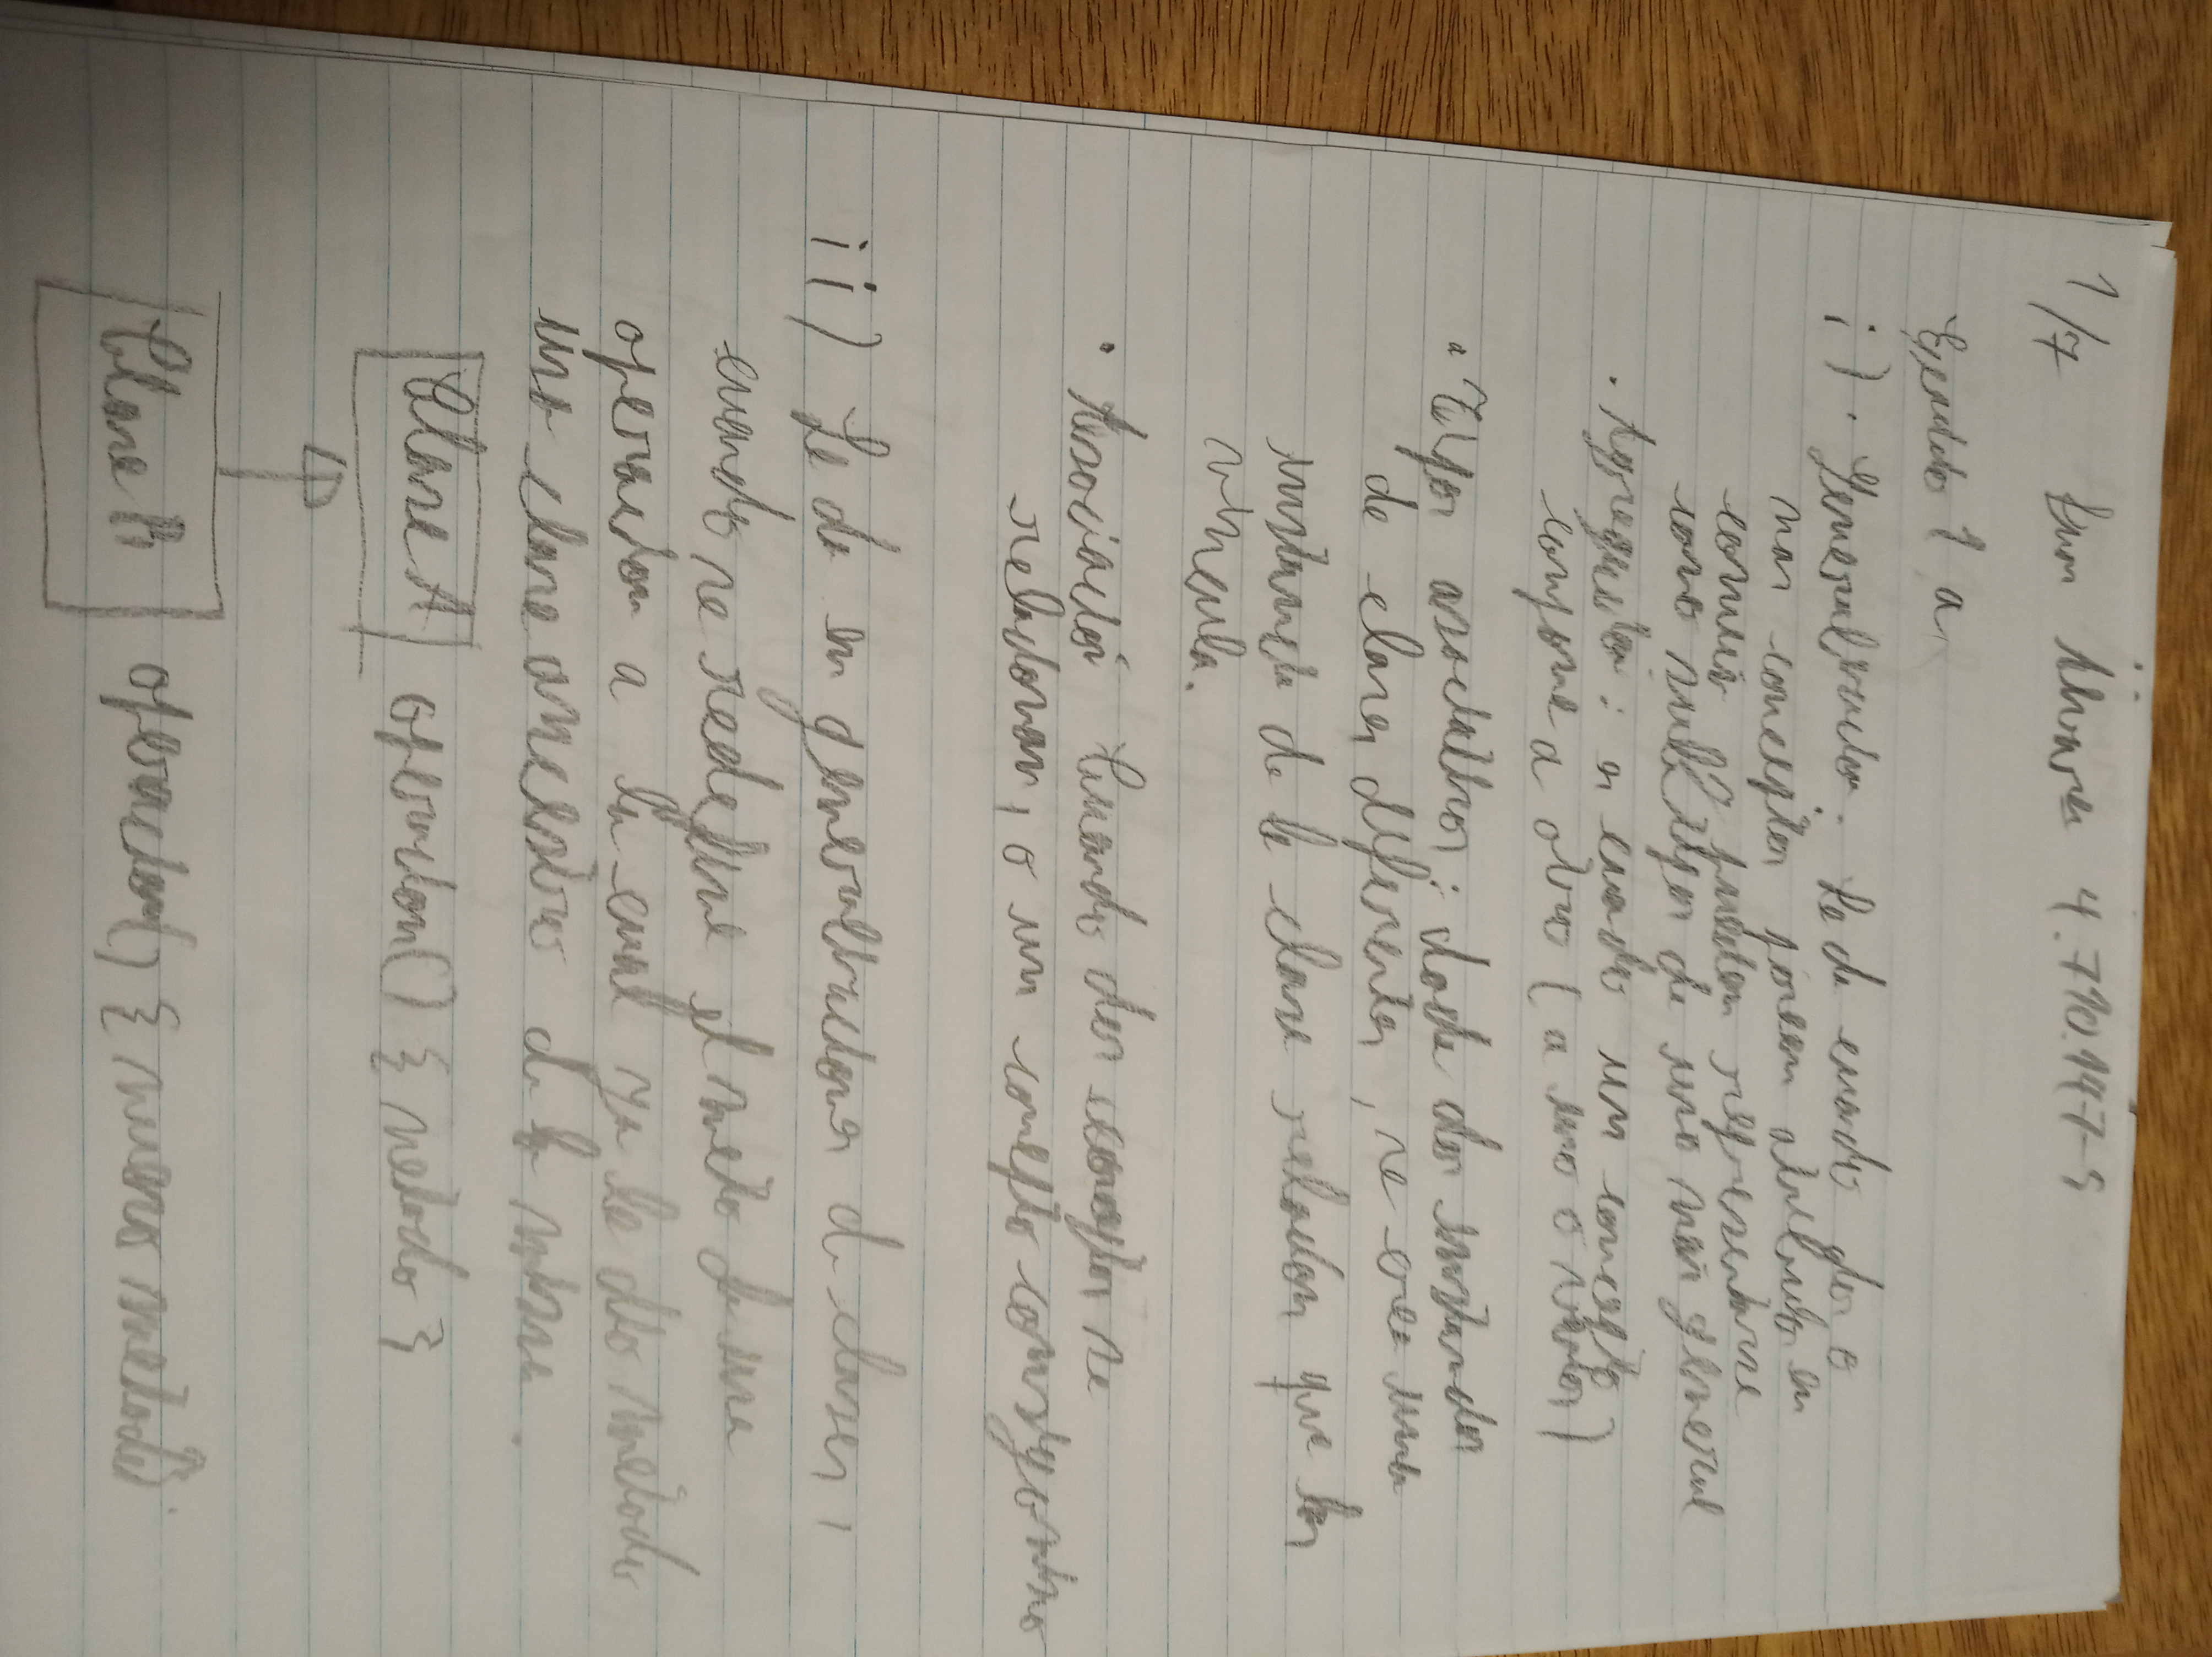 1/7 Álvarez 4.710.147-5
Ejercicio 1 a
i) · Generalización: Se da cuando dos o
mas conceptos poseen atributos en
común y pueden representarse
como subtipos de uno más general
· Agregación: es cuando un concepto
compone a otro (a uno o varios)
· Tipos asociativos: dada dos instancias
de clases diferentes, se crea una
instancia de la clase relacion que las
vincula.
· Asociación Cuando dos conceptos se
relacionan, o un concepto consigo mismo
ii) Se da en generalizaciones de clases,
cuando se redefine el meto de una
operacion a la cual ya le dio metodo
una clase ancestro de la misma.
Clase A operacion() { metodo }
Clase B operacion() { nuevo metodo}